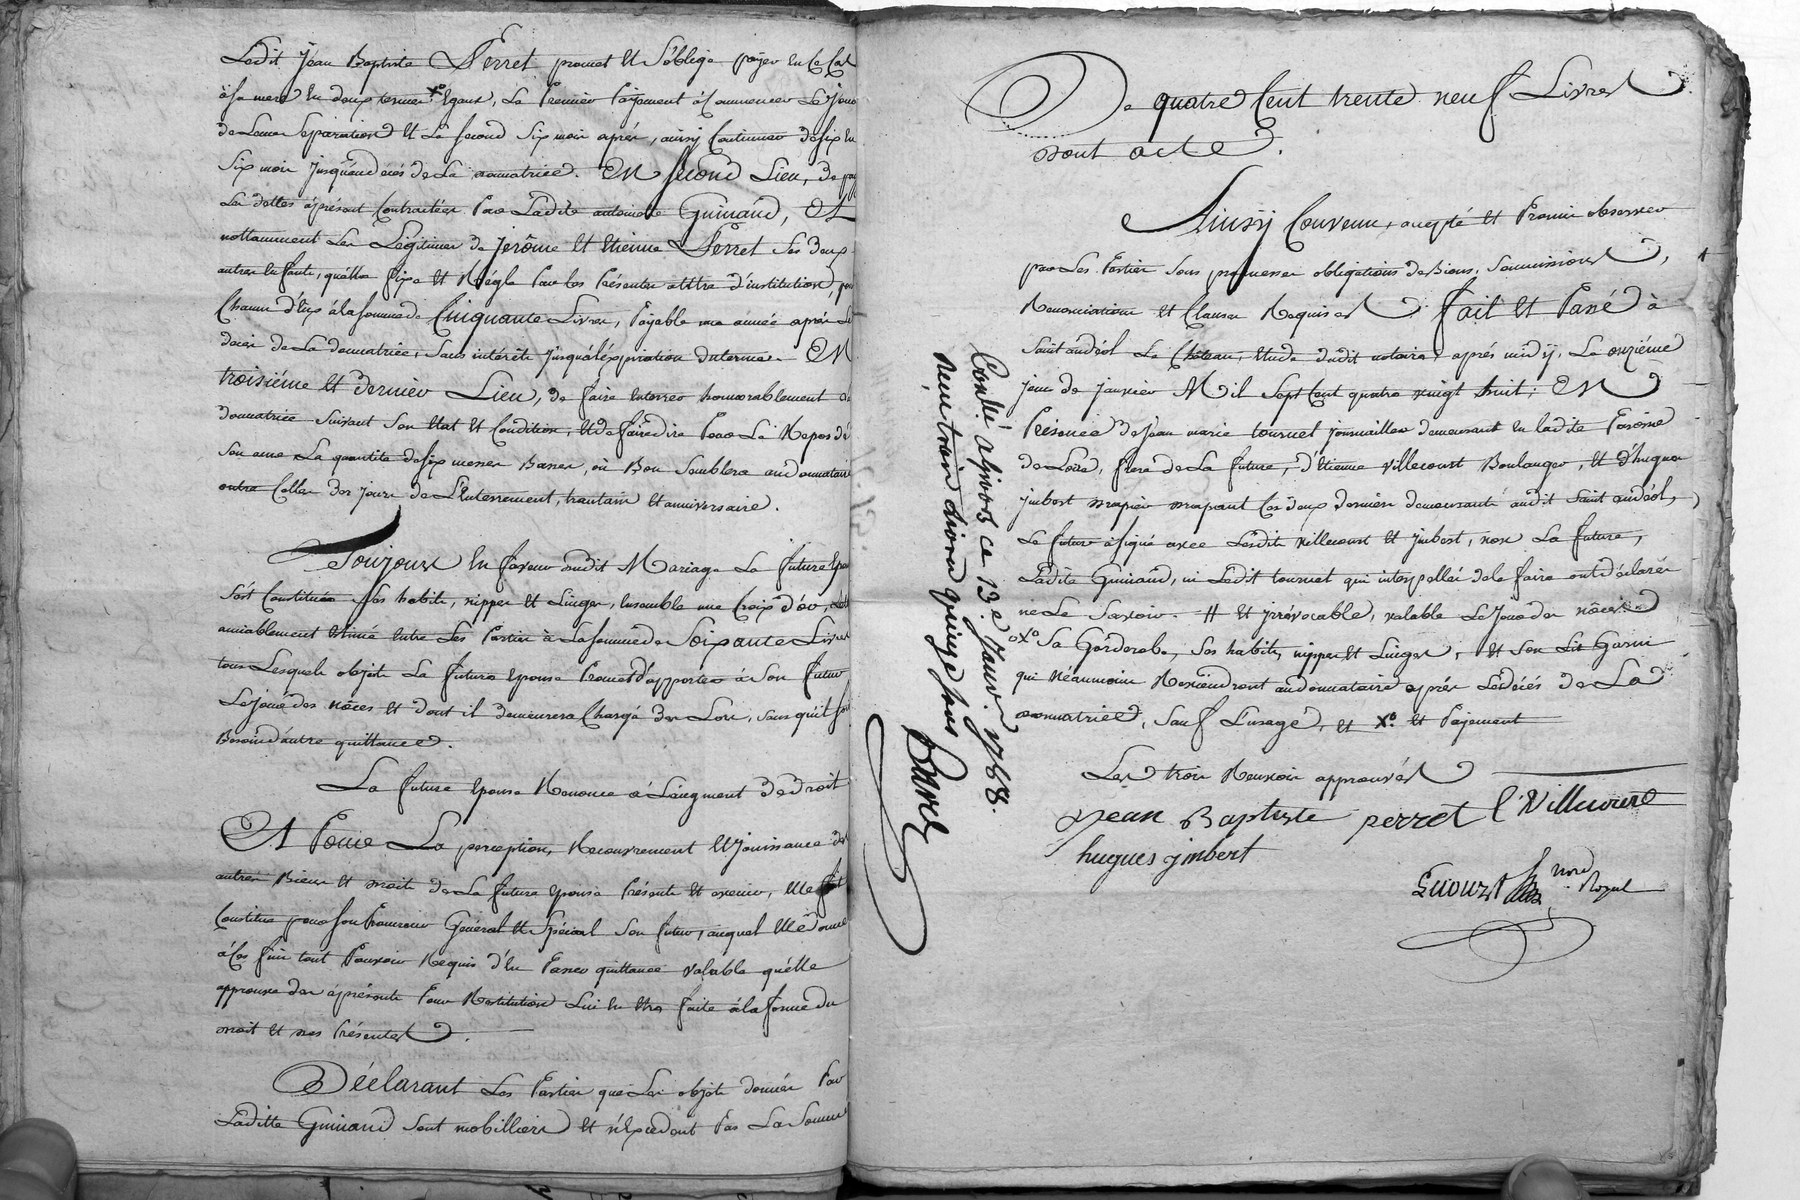 Ledit Jean Baptiste Perret promet et s'oblige payer en ce Cas
à sa mere en deux termes x° Egaux, Le Premier Payement à Commencer Le Jour
de Leur Separation et Le second six mois aprés, ainsy Continuer de six en
six mois Jusqu'au decés de La donnatrice. En second Lieu, de pay
Les dettes àprésent Contractées Par Ladite antoinette Guinand, Et
nottamment Les Légitimes de Jerôme et Etienne Perret ses deux
autres Enfants, qu'elle fixe et Régle Par les Présentes attitre d'institution, pour
Chacun d'Eux à la somme de Cinquante Livres, Payable une année aprés Le
décés de La donnatrice, sans intérêts Jusqu'à l'éxpiration du terme. En
troisiéme et dernier Lieu, de faire enterrer honnorablement
donnatrice suivant son Etat et Condition, et de faire dire Pour Le Repos dé
son ame La quantité de six messes Basses, où Bon Semblera au donnataire
outre Celles des Jours de L'Enterrement, trantain et anniversaire.
Toujours En faveur dudit Mariage La future Epouse
s'est Constituée ses habits, nippes et Linges, Ensemble une Croix d'or,
amiablement Estimée Entre Les Parties à La somme de Soixante Livres
tous Lesquels objets La future Epouse Promet d'apporter à son futur
Le jour des nôces et dont il demeurera Chargé dez Lors, sans qu'il soit
Besoin d'autre quittance.
La future Epouse Renonce à L'augment de droit
Et Pour La perception, Recouvrement et Jouissance des
autres Biens et droits de La future Epouse Présents et avenir, Elle fait
Constitue pour son Procureur Général et Spécial son futur, auquel Elle donne
à Ces fins tout Pouvoir Requis d'En Passer quittance valable qu'elle
approuve dez àprésent Pour Restitution Lui En Etre faite à la forme du
droit et des Présentes.
Déclarant Les Parties que Les objets donnés Par
Laditte Guinand sont mobilliers et n'Excedent Pas La Somme
De quatre Cent trente neuf Livres
dont acte.
Ainsy Convenu, accepté et Promis observer
par Les Parties sous promesses obligations de Biens, soumissions,
Renonciations et Clauses Requises. Fait et Passé à
Saint andéol Le Château, Etude dudit notaire, aprés midÿ, Le onziéme
jour de janvier Mil Sept Cent quatre vingt huit; En
Présence de Jean marie tournel journaillier demeurant En ladite Paroisse
de Loire, frere de La future, d'Etienne Villecourt Boulanger, et d'hugues
jmbert les deux derniers demeurants audit Saint andéol,
Le futur a signé avec Lesdits Villecourt et jmbert, non La future,
Ladite Guinand, ni Ledit tournel qui interpellés de le faire ont déclarés
ne Le Savoir. H et jrrévocable, valable Le Jour des nôces
x° Sa Garderobe, ses habits, nippes et Linges, et son Lit Garni
qui Néanmoins Reviendront audonnataire aprés Ledécés de La
donnatrice, sauf L'usage, et x° et Pajement
Les trois Renvois approuvés
Jean Baptiste perret E Villecourt
hugues jmbert
nore Royal
Contlé à givors ce 13e Janv. 1788.
Reçu trois livres quinze sous